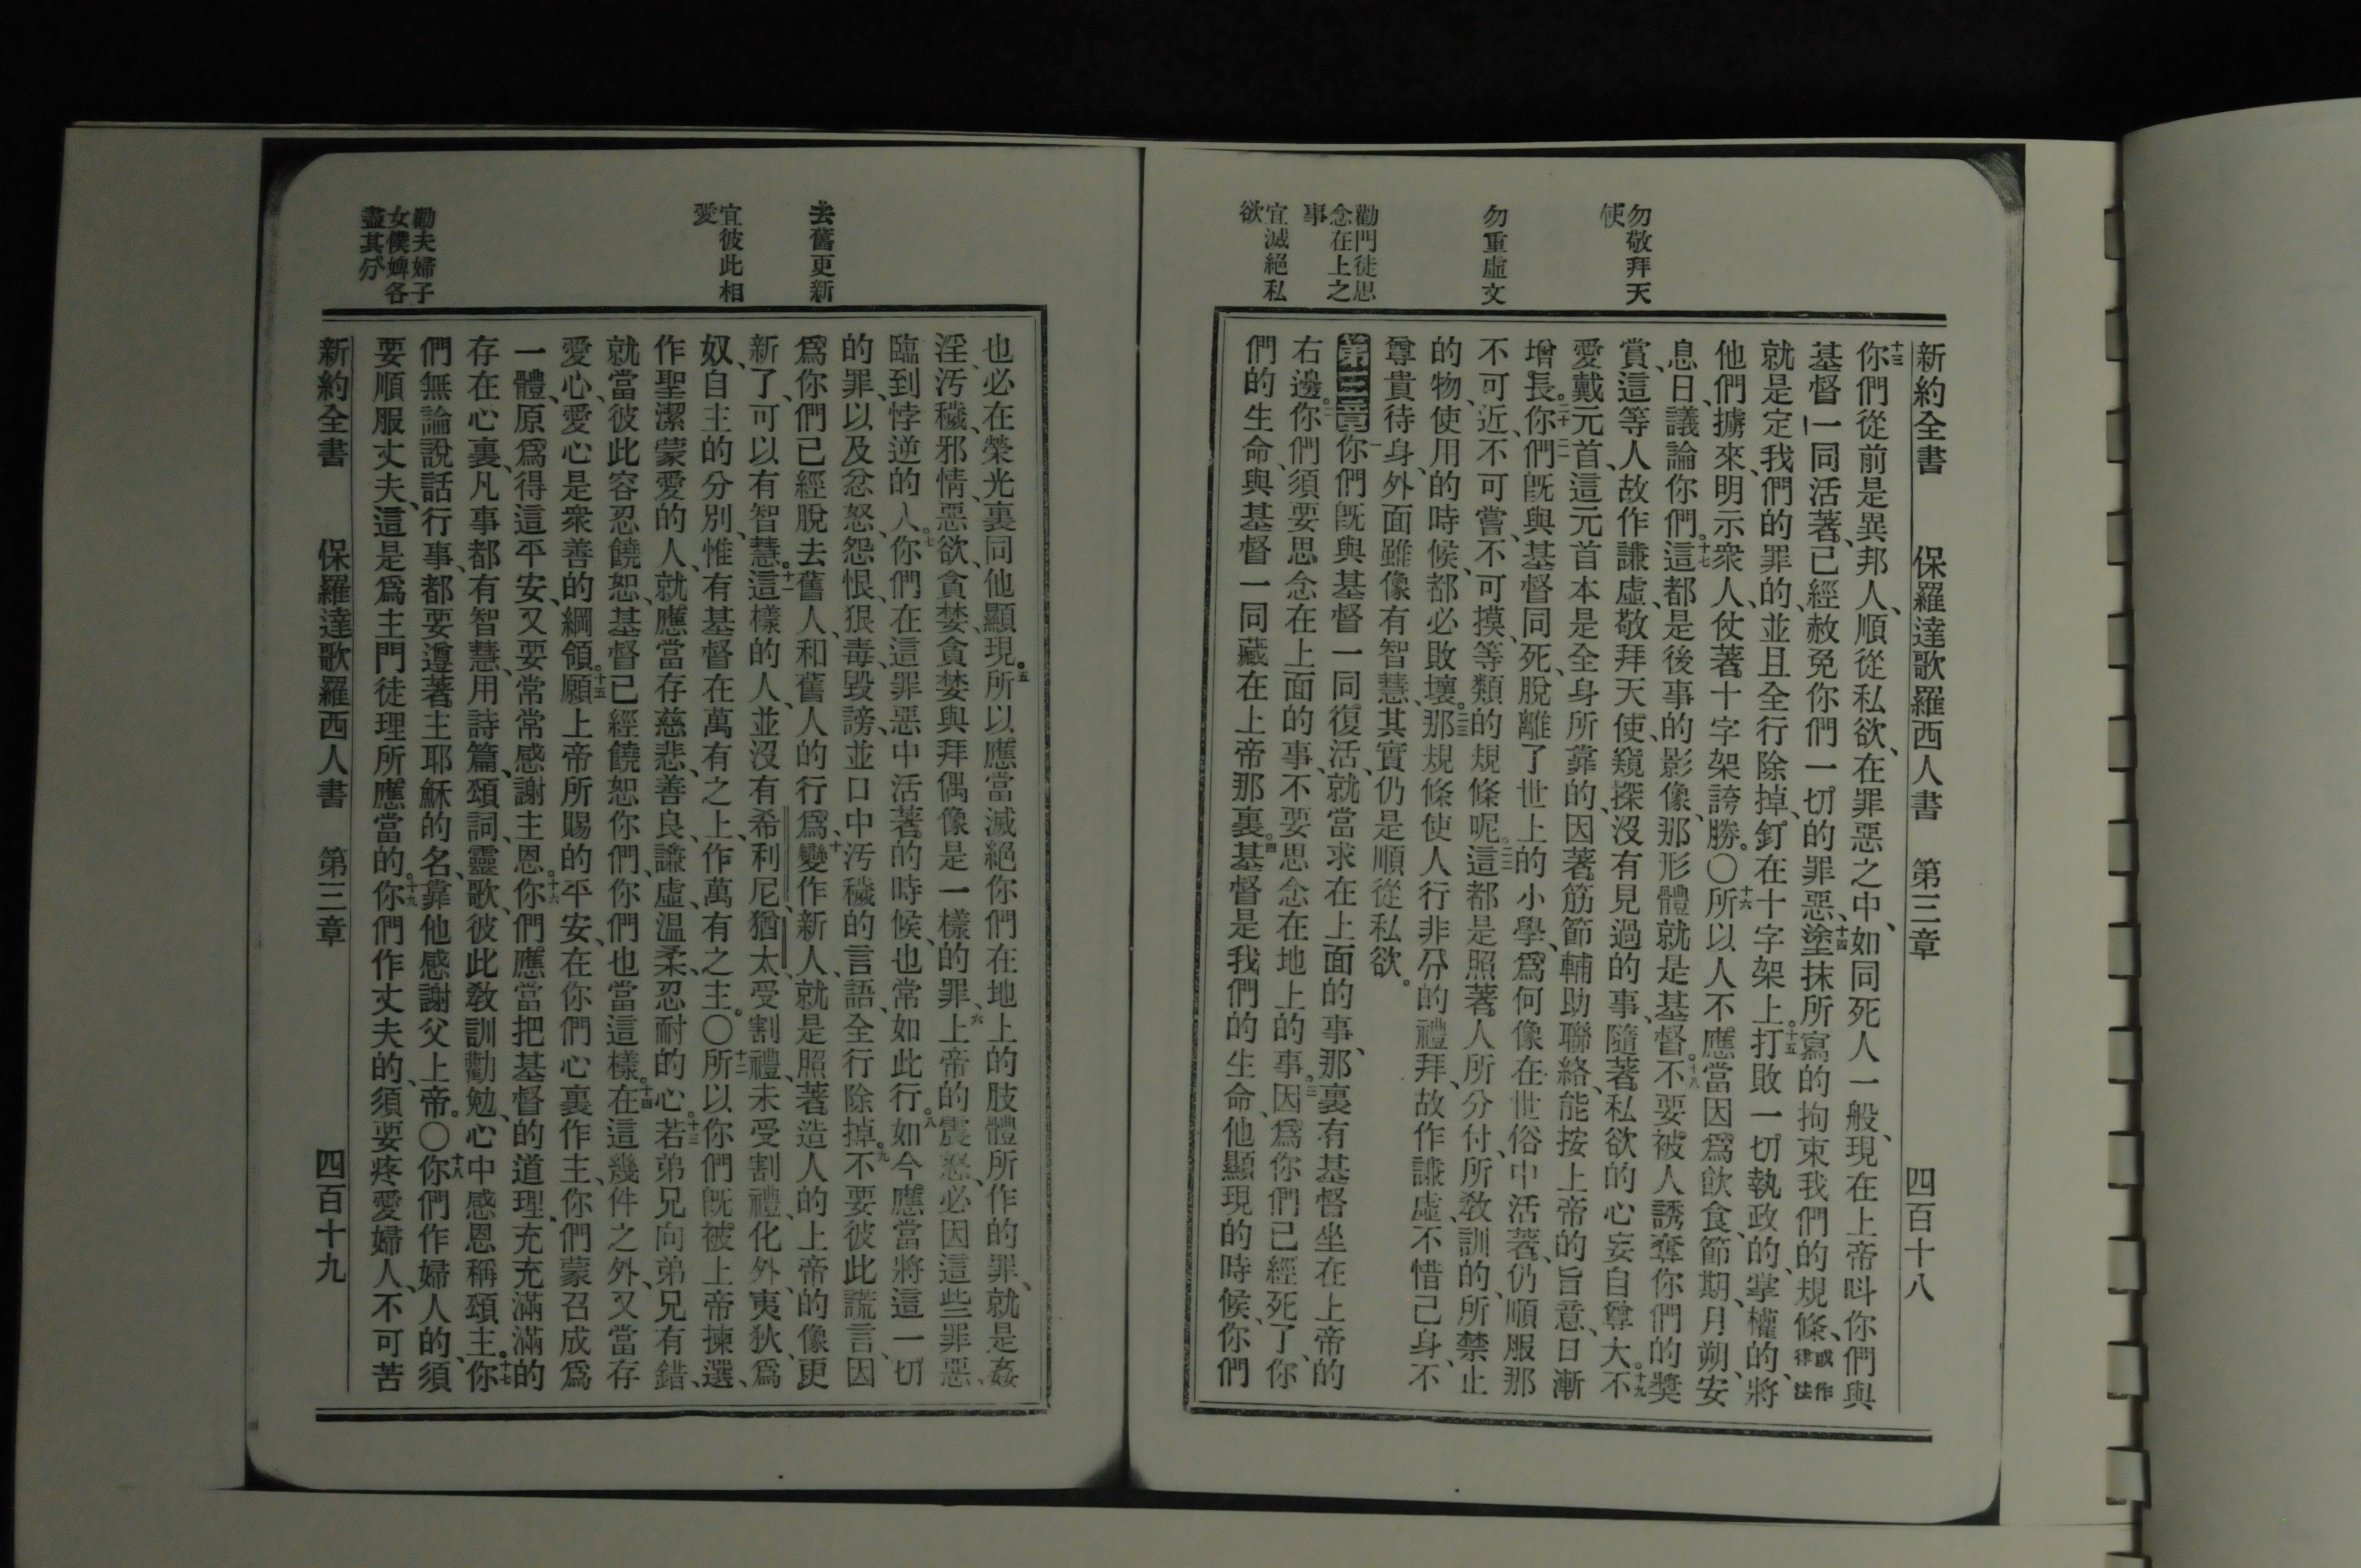 新約全書 保羅達歌羅西人書 第三章 四百十八
勿敬拜天
使
勿重虛文
勸門徒思
念在上之
事
宜滅絕私
欲
十三你們從前是異邦人、順從私欲、在罪惡之中、如同死人一般、現在上帝呌你們與
基督一同活著、已經赦免你們一切的罪惡、十四塗抹所寫的拘束我們的規條、或作律法
就是定我們的罪的、並且全行除掉、釘在十字架上。十五打敗一切執政的、掌權的、將
他們擄來、明示衆人、仗著十字架誇勝。〇十六所以人不應當因爲飮食、節期、月朔、安
息日、議論你們。十七這都是後事的影像、那形體就是基督。十八不要被人誘奪你們的獎
賞、這等人故作謙虛、敬拜天使、窺探沒有見過的事、隨著私欲的心妄自尊大。十九不
愛戴元首、這元首本是全身所靠的、因著筋節輔助聯絡、能按上帝的旨意、日漸
增長。二十你們旣與基督同死、脫離了世上的小學、爲何像在世俗中活著、仍順服那
不可近、不可嘗、不可摸、等類的規條呢。這都是照著人所分付、所敎訓的、所禁止
的物、使用的時候、都必敗壞。那規條使人行非分的禮拜、故作謙虛、不惜己身、不
尊貴待身、外面雖像有智慧、其實仍是順從私欲。
第三章一你們旣與基督一同復活、就當求在上面的事、那裏有基督坐在上帝的
右邊。二你們須要思念在上面的事、不要思念在地上的事。三因爲你們已經死了、你
們的生命、與基督一同藏在上帝那裏。四基督是我們的生命、他顯現的時候、你們
去舊更新
宜彼此相
愛
勸夫婦子
女僕婢各
盡其分
也必在榮光裏同他顯現。五所以應當滅絕你們在地上的肢體所作的罪、就是姦
淫、汚穢、邪情、惡欲、貪婪、貪婪與拜偶像是一樣的罪、六上帝的震怒、必因這些罪惡、
臨到悖逆的人。七你們在這罪惡中活著的時候、也常如此行。八如今應當將這一切
的罪、以及忿怒、怨恨、狠毒、毀謗、並口中汚穢的言語、全行除掉。九不要彼此謊言、因
爲你們已經脫去舊人、和舊人的行爲、十變作新人、就是照著造人的上帝的像更
新了、可以有智慧。十一這樣的人、並沒有希利尼、猶太、受割禮、未受割禮、化外、夷狄、爲
奴、自主的分別、惟有基督在萬有之上、作萬有之主。〇十二所以你們旣被上帝揀選、
作聖潔蒙愛的人、就應當存慈悲、善良、謙虛、溫柔、忍耐的心。十三若弟兄向弟兄有錯、
就當彼此容忍饒恕、基督已經饒恕你們、你們也當這樣。十四在這幾件之外、又當存
愛心、愛心是衆善的綱領。十五願上帝所賜的平安、在你們心裏作主、你們蒙召成爲
一體、原爲得這平安、又要常常感謝主恩。十六你們應當把基督的道理、充充滿滿的
存在心裏、凡事都有智慧、用詩篇、頌詞、靈歌、彼此敎訓勸勉、心中感恩稱頌主。十七你
們無論說話行事、都要遵著主耶穌的名、靠他感謝父上帝。〇十八你們作婦人的、須
要順服丈夫、這是爲主門徒理所應當的。十九你們作丈夫的、須要疼愛婦人、不可苦
新約全書 保羅達歌羅西人書 第三章 四百十九